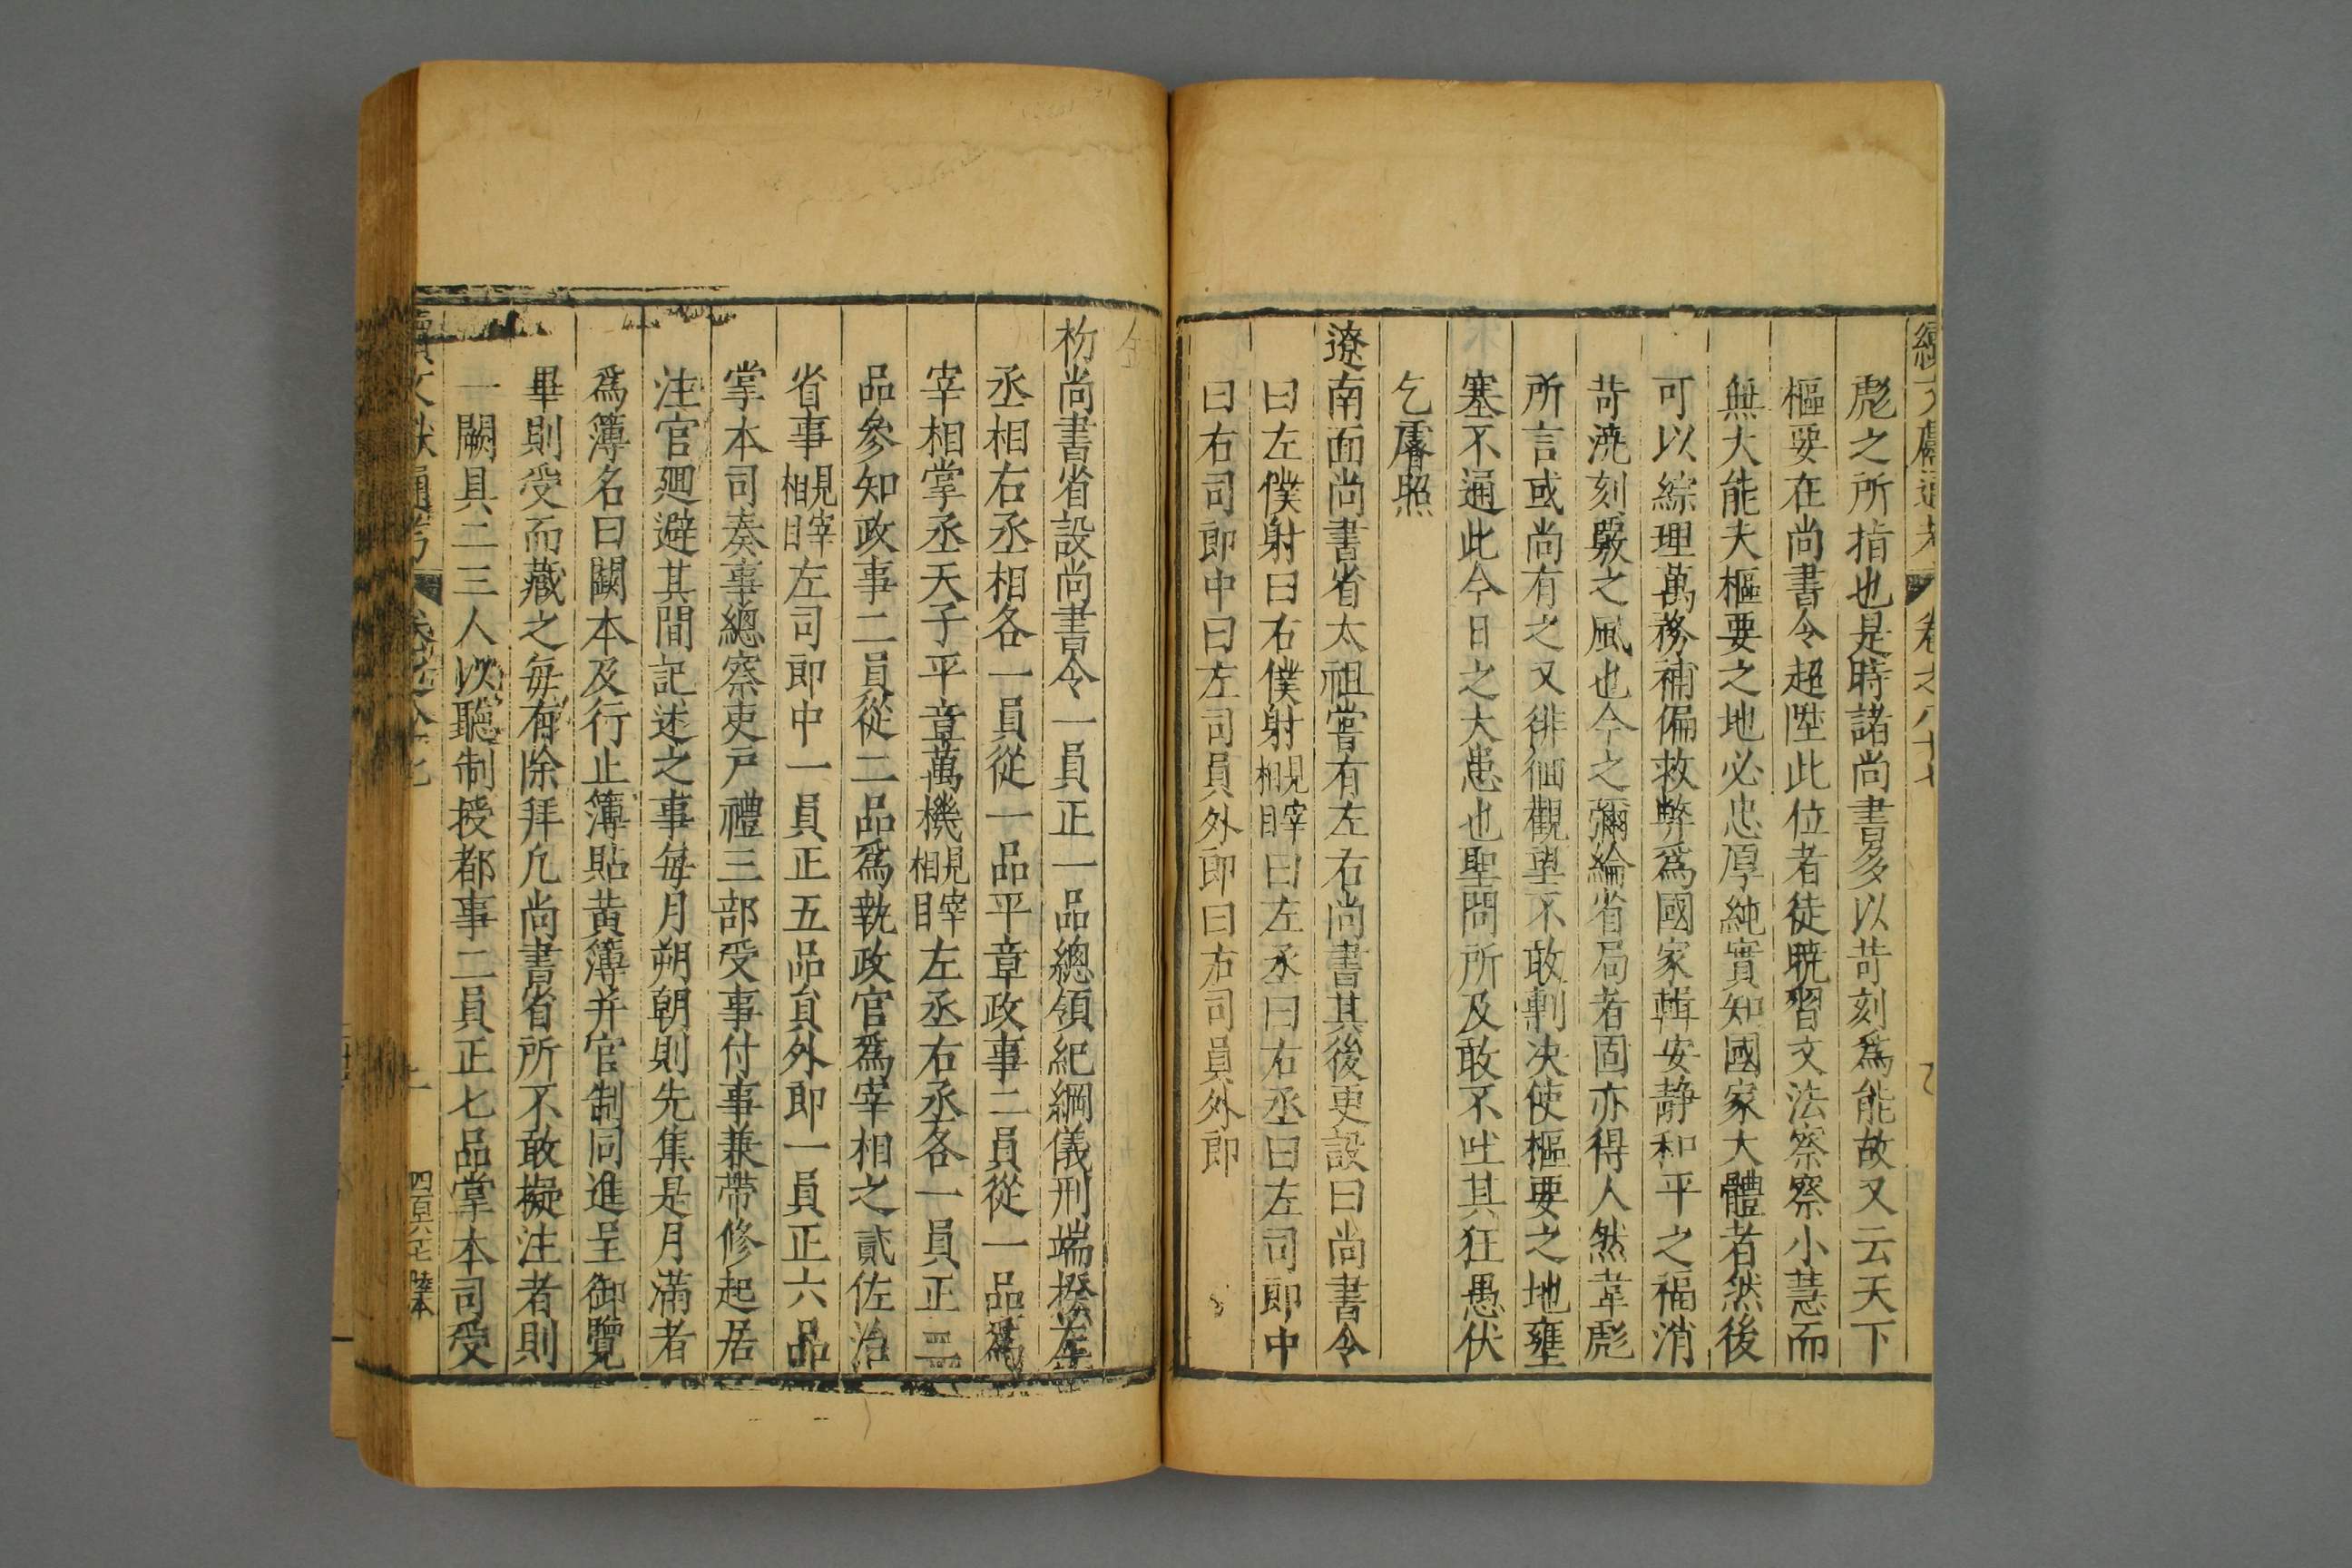 續文獻通考 卷之八十七
彪之所指也是時諸尚書多以苛刻爲能故又云天下
樞要在尚書令超陞此位者徒曉習文法察察小慧而
無大能夫樞要之地必忠厚純實知國家大體者然後
可以綜理萬務補偏救弊爲國家輯安静和平之福消
苛澆刻覈之風也今之彌綸省局者固亦得人然韋彪
所言或尚有之又徘徊觀望不敢剸決使樞要之地壅
塞不通此今日之大患也聖問所及敢不吐其狂愚伏
乞睿照
遼南面尚書省太祖嘗有左右尚書其後更設曰尚書令
曰左僕射曰右僕射見宰相目曰左丞曰右丞曰左司郎中
曰右司郎中曰左司員外郎曰右司員外郎
尚書省設尚書令一員正一品總領紀綱儀刑端揆左
丞相右丞相各一員從一品平章政事二員從一品爲
宰相掌丞天子平章萬機見宰相目左丞右丞各一員正二
品參知政事二員從二品爲執政官爲宰相之貳佐治
省事見宰相目左司郎中一員正五品員外郎一員正六品
掌本司奏事總察吏戶禮三部受事付事兼帶修起居
注官廻避其間記述之事每月朔朝則先集是月滿者
爲簿名曰闕本及行止簿貼黃簿并官制同進呈御覽
畢則受而藏之每有除拜凡尚書省所不敢擬注者則
一闕具二三人以聽制授都事二員正七品掌本司受
續文獻通考 卷之八十七